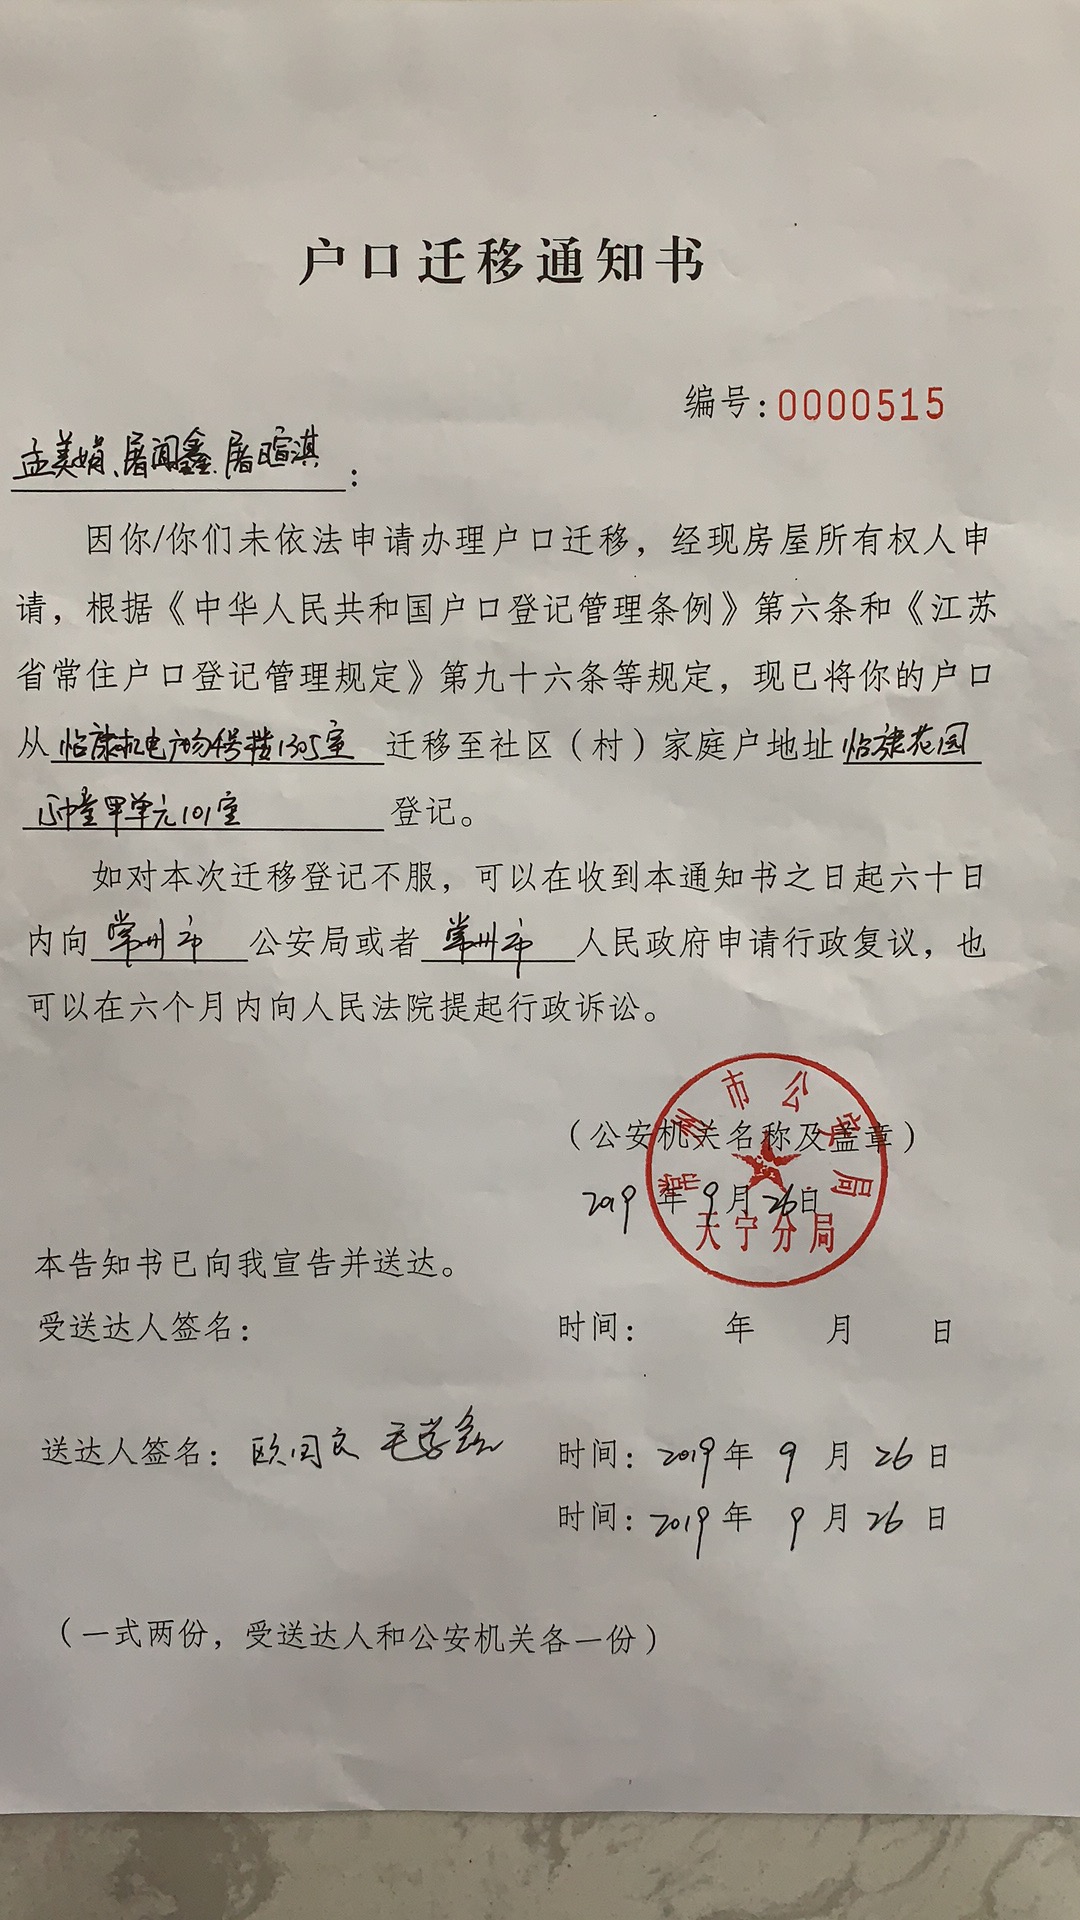 户口迁移通知书
编号：0000515
孟美娟、屠闻鑫、屠暄淇：
因你/你们未依法申请办理户口迁移，经现房屋所有权人申
请，根据《中华人民共和国户口登记管理条例》第六条和《江苏
省常住户口登记管理规定》第九十六条等规定，现已将你的户口
从怡康机电广场 楼1305室迁移至社区（村）家庭户地址怡康花园
甲单元101室 登记。
如对本次迁移登记不服，可以在收到本通知书之日起六十日
内向常州市公安局或者常州市人民政府申请行政复议，也
可以在六个月内向人民法院提起行政诉讼。
（公安机关名称及盖章）
常州市公安局
2019年9月26日
天宁分局
本告知书已向我宣告并送达。
受送达人签名： 时间： 年 月 日
送达人签名：欧国良 毛 时间：2019年9月26日
时间：2019年9月26日
（一式两份，受送达人和公安机关各一份）